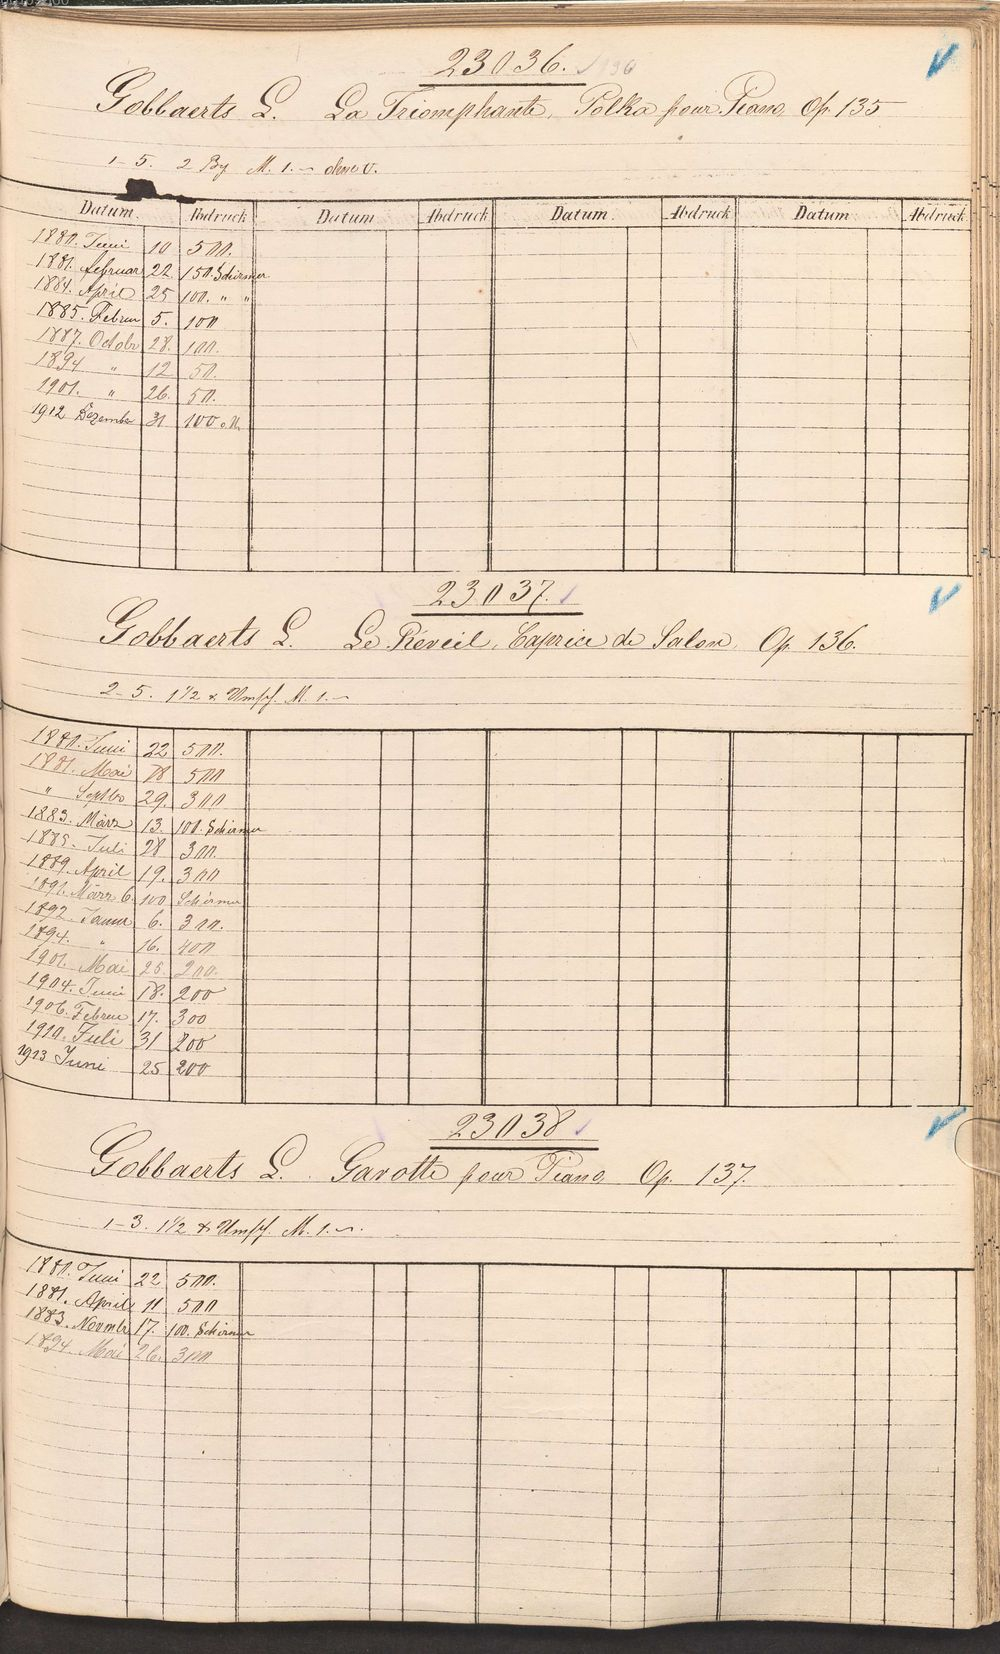 23036.
Gobbaerts L. La Triomphante, Polka pour Piano, Op. 135
1-5. 2 Bg M. 1.- ohne U.
Datum. Abdruck Datum Abdruck Datum. Abdruck Datum. Abdruck
1880. Juni 10 500.
1881. Februar 22. 150. Schirmer
1884. April 25 100. " "
1885. Febru 5. 100
1887. Octobr 28. 100.
1894 " 12 50.
1901. " 26. 50.
1912 Dezember 31 100
23037.
Gobbaerts L. Le Réveil, Caprice de Salon, Op. 136.
2-5. 1 1/2 & Umsch. M. 1.-
1880. Juni 22 500.
1881. Mai 18 500
" Septbr 29. 300
1883. März 13. 100. Schirmer
1885. Juli 28 300.
1889. April 19. 300
1891. März 6. 100 Schirmer
1892. Januar 6. 300.
1894. " 16. 400
1901. Mai 25. 200.
1904. Juni 18. 200
1906. Febru 17. 300
1910. Juli 31 200
1913 Juni 25 200
23038
Gobbaerts L. Gavotte pour Piano, Op. 137.
1-3. 1 1/2 & Umsch. M. 1.-.
1880. Juni 22 500.
1881. April 11 500
1883. Novmbr 17. 100. Schirmer
1894. Mai 26. 300